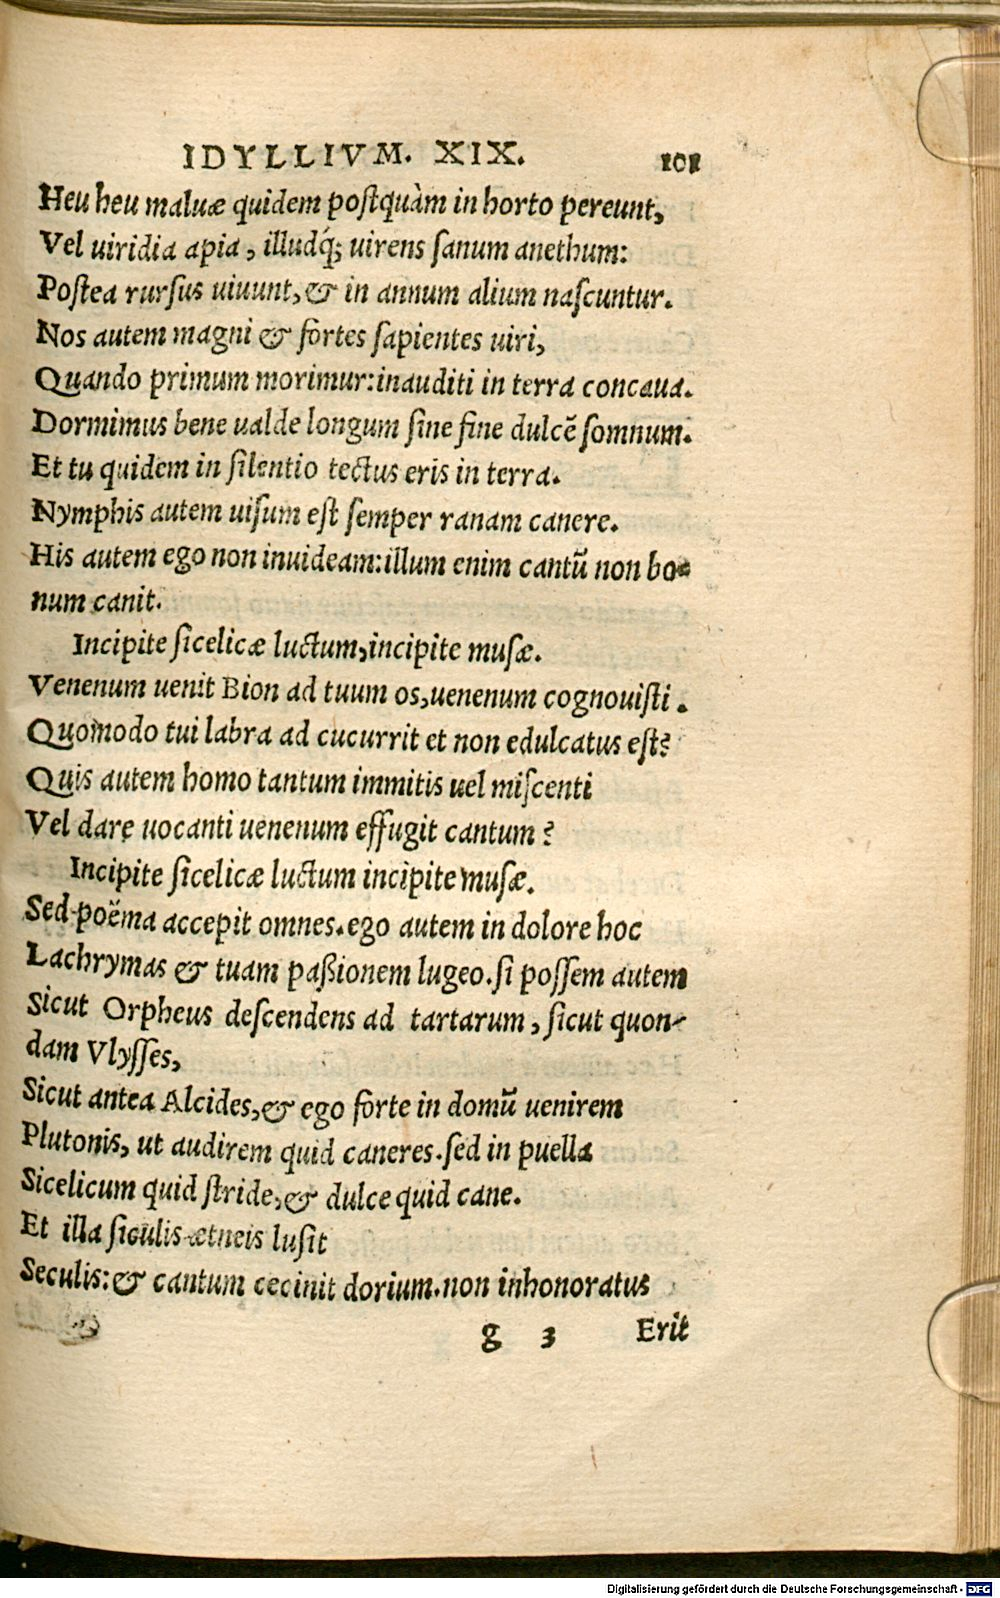 IDYLLIVM. XIX. 101
Heu heu maluæ quidem postquàm in horto pereunt,
Vel uiridia apia, illudq́; uirens sanum anethum:
Postea rursus uiuunt, & in annum alium nascuntur.
Nos autem magni & fortes sapientes uiri,
Quando primum morimur: inauditi in terra concaua.
Dormimus bene ualde longum sine fine dulcē somnum.
Et tu quidem in silentio tectus eris in terra.
Nymphis autem uisum est semper ranam canere.
His autem ego non inuideam: illum enim cantū non bo-
num canit.
Incipite sicelicæ luctum, incipite musæ.
Venenum uenit Bion ad tuum os, uenenum cognouisti.
Quomodo tui labra ad cucurrit et non edulcatus est?
Quis autem homo tantum immitis uel miscenti
Vel dare uocanti uenenum effugit cantum?
Incipite sicelicæ luctum incipite musæ.
Sed poëma accepit omnes. ego autem in dolore hoc
Lachrymas & tuam paßionem lugeo. si possem autem
Sicut Orpheus descendens ad tartarum, sicut quon-
dam Vlysses,
Sicut antea Alcides, & ego forte in domū uenirem
Plutonis, ut audirem quid caneres. sed in puella
Sicelicum quid stride, & dulce quid cane.
Et illa siculis ætneis lusit
Seculis: & cantum cecinit dorium. non inhonoratus
g 3 Erit
Digitalisierung gefördert durch die Deutsche Forschungsgemeinschaft - DFG